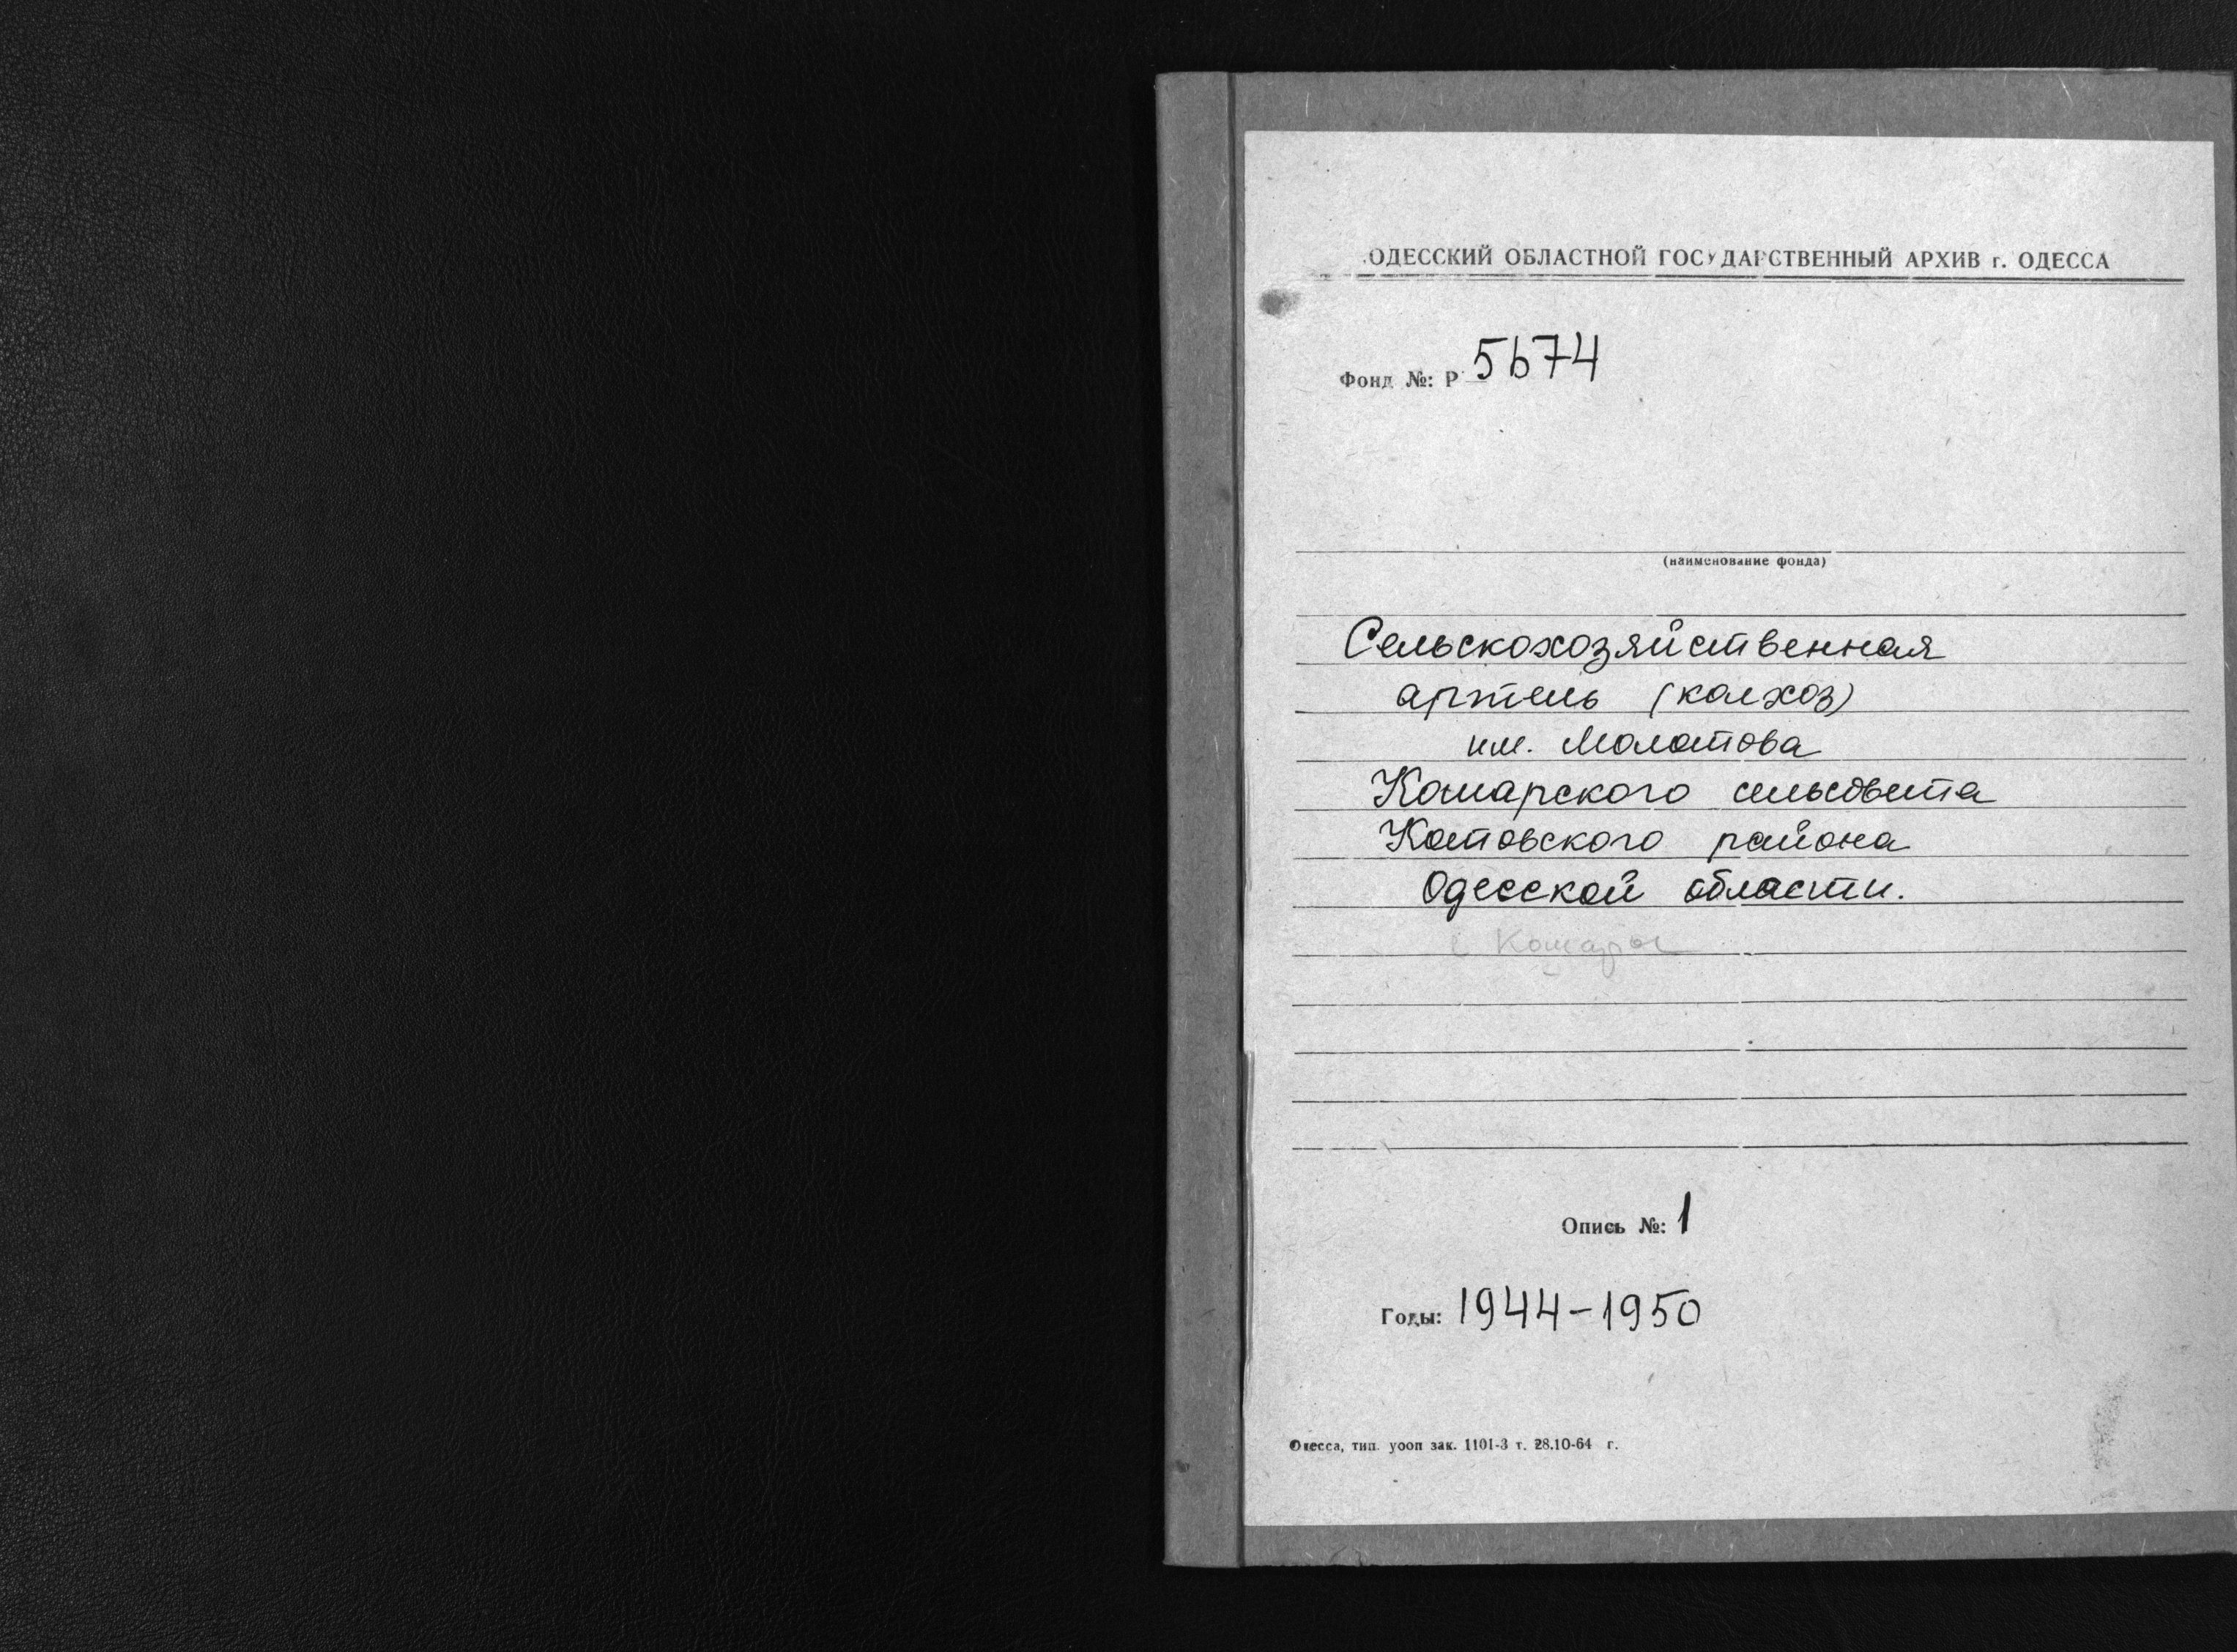 ОДЕССКИЙ ОБЛАСТНОЙ ГОСУДАРСТВЕННЫЙ АРХИВ г. ОДЕССА
Фонд №: Р 5674
(наименование фонда)
Сельскохозяйственная
артель (колхоз)
им. Молотова
Кошарского сельсовета
Котовского района
Одесской области.
с Кошары
Опись №: 1
Годы: 1944-1950
Одесса, тип. уооп зак. 1101-3 т. 28.10-64 г.